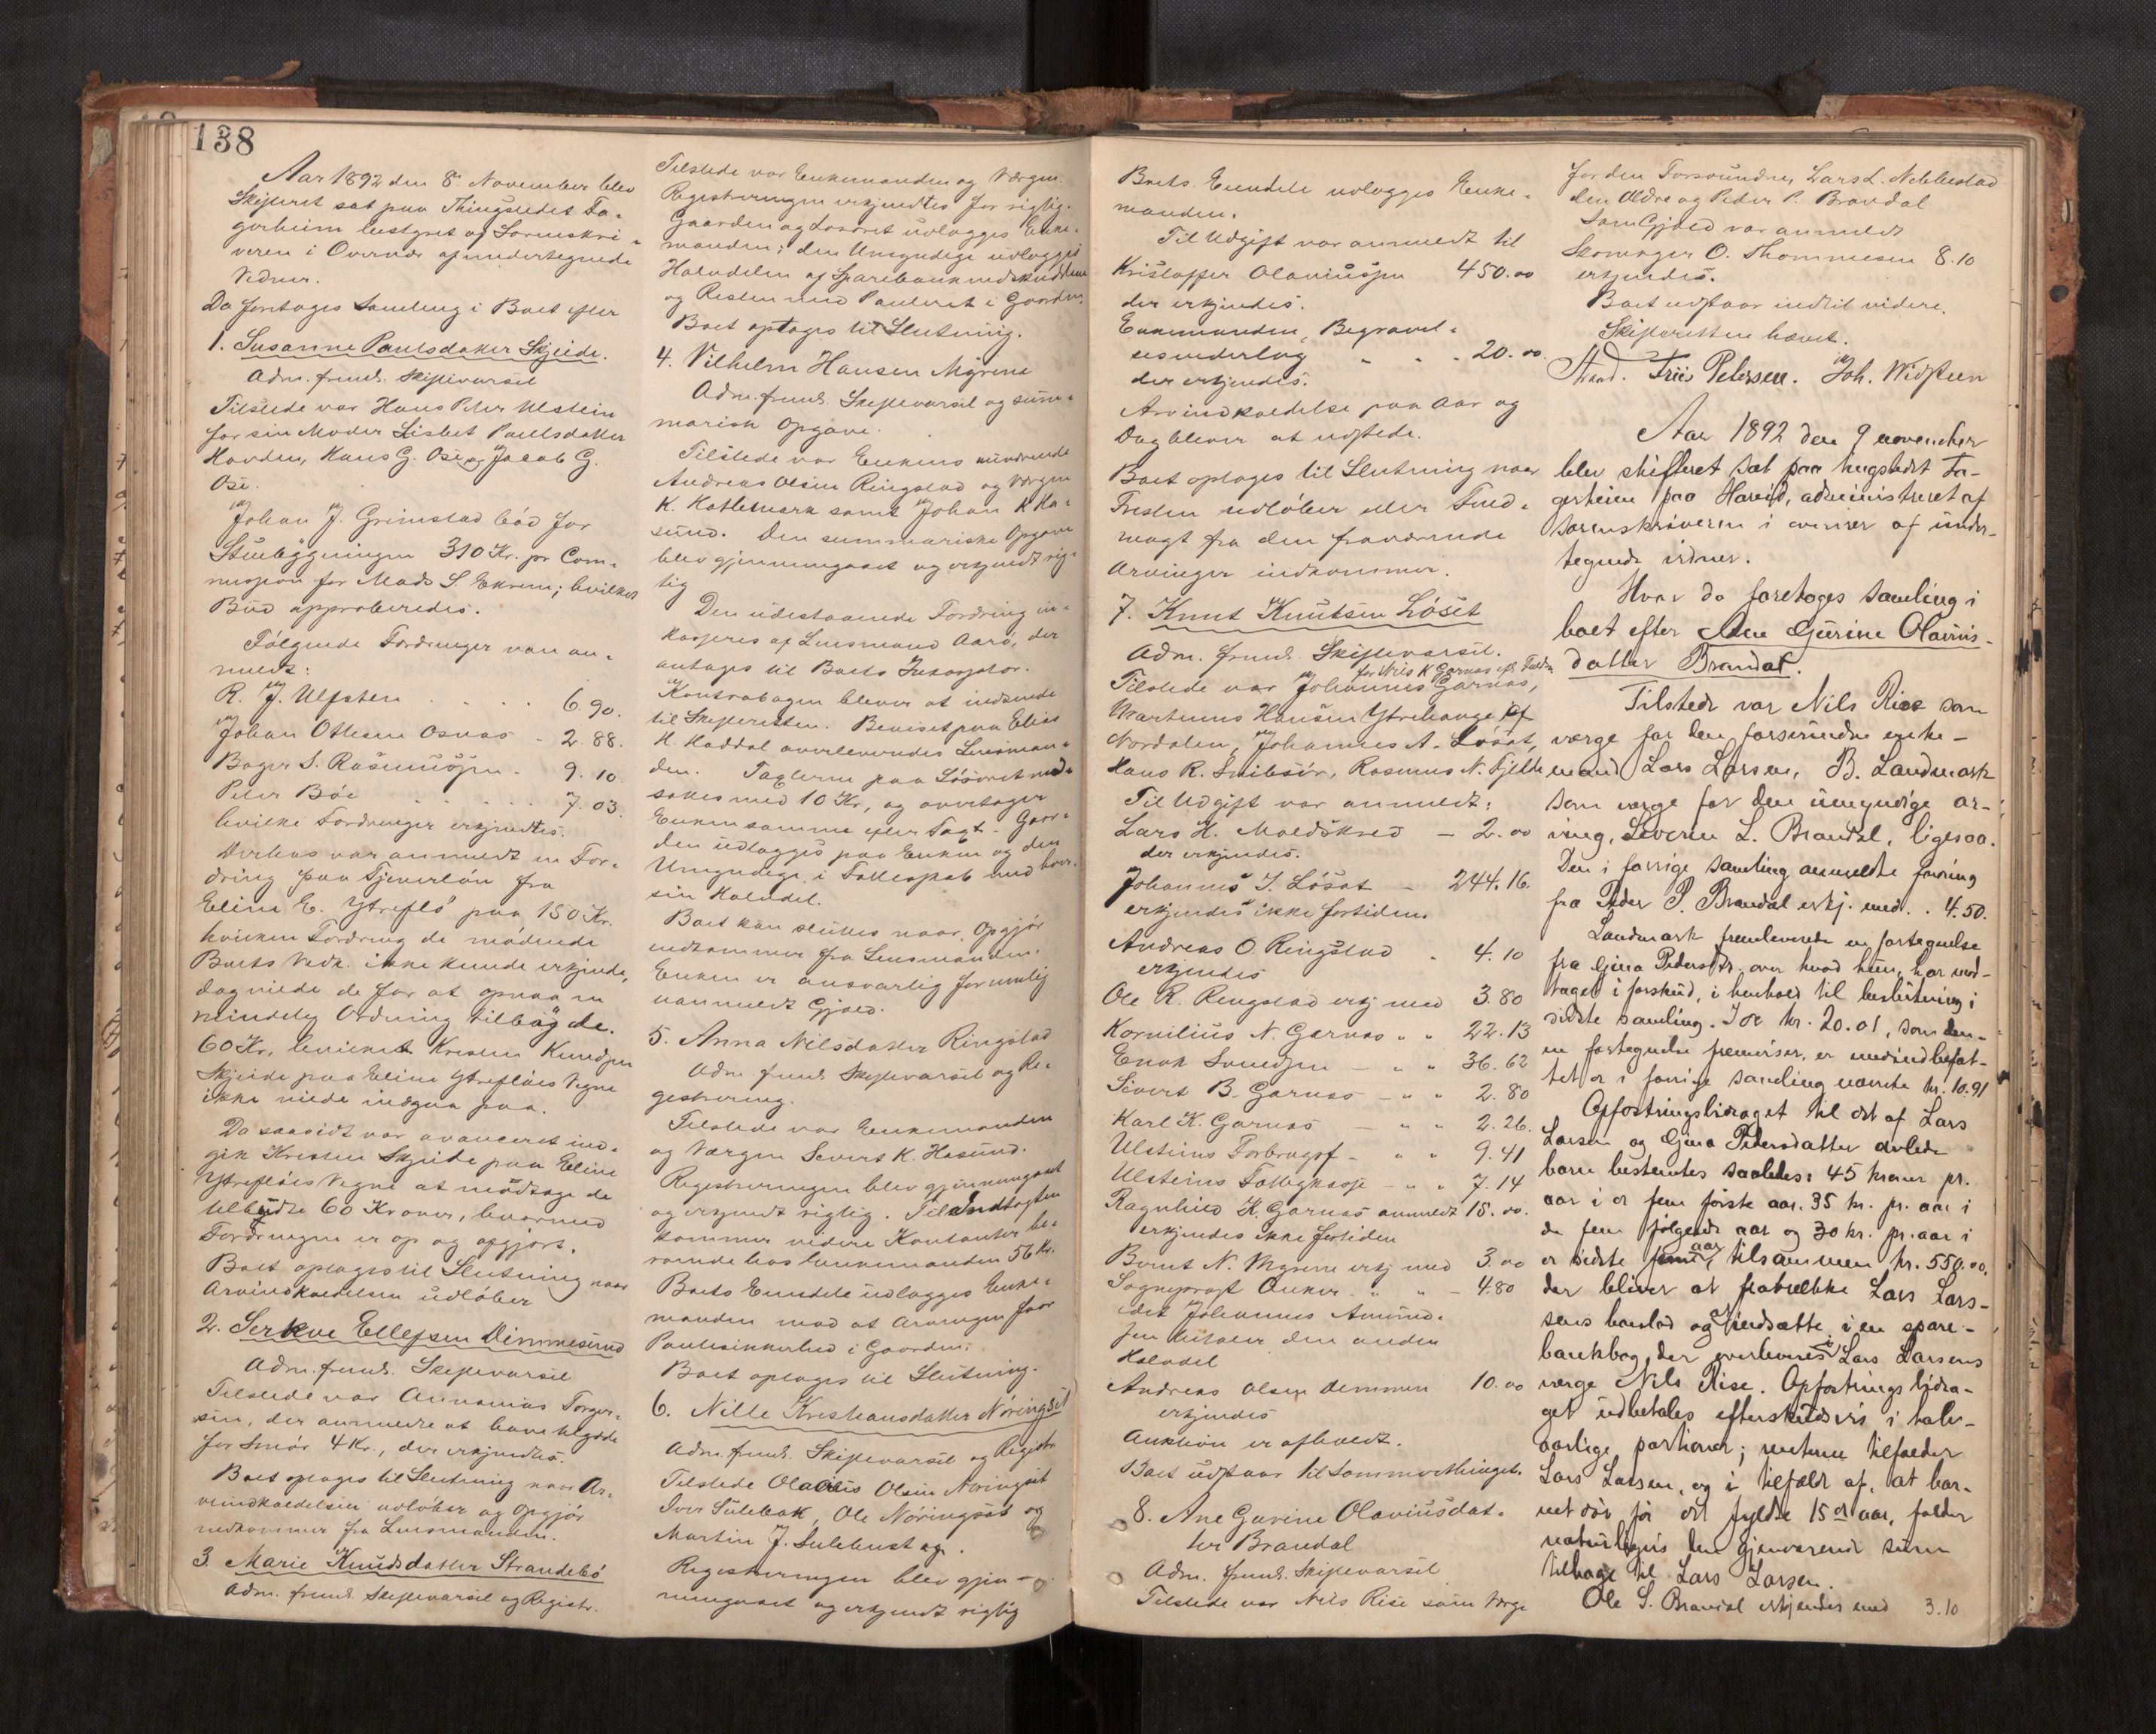 138
Aar 1892 den 8. November blev
Skifteret sat paa Thingstedet Fa-
gerheim bestyret af Sorenskri-
veren i Overvær af undertegnede
Vidner.
Da foretoges Samling i Boet efter
1. Susanne Paulsdatter Skjeide.
Adm. freml. Skiftevarsel
Tilstede var Hans Peter Ulstein
for sin Moder Lisbet Paulsdatter
Havden, Hans G. Ose og Jacob G.
Ose.
Johan J. Grimstad bød for
Stuebygningen 310 Kr. pr Com-
mission for Mads S. Ekrem; hvilket
Bud approberedes.
Følgende Fordringer var an-
meldt:
R. J. Ulfsten . . . . 6.90.
Johan Ottesen Osnæs - 2.88.
Bager S. Rasmussen - 9.10
Peter Böe . . . . . 7.03.
hvilke Fordringer erkjendtes.
Derhos var anmeldt en For-
dring paa Tjenerløn fra
Eline E. Ytreflö paa 150 Kr.
hvilken Fordring de mødende
Boets Vedk. ikke kunde erkjende,
dog vilde de for at opnaa en
mindelig Ordning tilbøde.
60 Kr, hvilket Kristen Knudsen
Skjeide paa Eline Ytreflöes Vegne
ikke vilde indgaa paa.
Da saavidt var avanceret ind-
gik Kristen Skjeide paa Eline
Ytreflöes Vegne at modtage de
tilbudte 60 Kroner, hvormed
Fordringen er op og afgjort.
Boet optages til Slutning naar
Arveindkaldelsen udløber
2. Serkve Ellefsen Dimmesund
Adm. freml. Skiftevarsel
Tilstede var Annanias Torger-
sen, der anmeldte at have tilgode
for Smør 4 Kr., der erkjendtes.
Boet optages til Slutning naar Ar-
veindkaldelsen udløber og Opgjør
indkommer fra Lensmanden.
3. Marie Knudsdatter Strandebö
Adm. freml. Skiftevarsel og Registr.
Tilstede var Enkemanden og Værgen.
Registreringen erkjendtes for rigtig.
Gaarden og Løsøret udlægges Enke-
manden; den Umyndige udlægges
Halvdelen af Sparebankindskuddene
og Resten med Panteret i Gaarden.
Boet optages til Slutning.
4. Vilhelm Hansen Myrene
Adm. freml. Skiftevarsel og sum-
marisk Opgave.
Tilstede var Enkens
Andreas Olsen Ringstad og Værgen
K. Hatlemark samt Johan K Ha-
sund. Den summariske Opgave
blev gjennemgaaet og erkjendt rig-
tig
Den udestaaende Fordring in-
kasseres af Lensmand Aarö, der
antages til Boets Inkassator.
Kontrabogen bliver at indsende
til Skifteretten. Beviset paa Elias
H. Haddal overleveredes Lensman-
den. Taxterne paa Løsøret ned-
sættes med 10 Kr, og overtager
Enken samme efter Taxt. Gaar-
den udlægges paa Enken og den
Umyndige i Fællesskab med hver
sin Halvdel.
Boet kan sluttes naar Opgjør
indkommer fra Lensmanden.
Enken er ansvarlig for mulig
uanmeldt Gjæld.
5. Anna Nilsdatter Ringstad
Adm. freml. Skiftevarsel og Re-
gistrering.
Tilstede var Enkemanden
og Værgen Severt K. Hasund.
Registreringen blev gjennemgaaet
og erkjendt rigtig. Til Indtægten
kommer videre Kontanter be-
roende hos Enkemanden 56 Kr.
Boets Eiendele udlægges Enke-
manden mod at Arvingen faar
Pantesikkerhed i Gaarden.
Boet optages til Slutning.
6. Nille Kristiansdatter Nöringset
Adm. freml. Skiftevarsel og Registr.
Tilstede Olaus Olsen Nöringset
Iver Sulebak, Ole Nöringset og
Martin J. Sulebust og.
Registreringen blev gjen-
nemgaaet og erkjendt rigtig
Boets Eiendele udlægges Enke-
manden.
Til Udgift var anmeldt til
Kristoffer Olaviussen 450.00
der erkjendes.
Enkemanden, Begravel-
sesudlæg " " - 20.00.
der erkjendes.
Arveindkaldelse paa Aar og
Dag bliver at udstede.
Boet optages til Slutning naar
Fristen udløber eller Fuld-
magt fra den fraværende
Arvinger indkommer.
7. Knut Knutsen Löset
Adm. freml. Skiftevarsel.
for Nils K Garnæs efter Fuldm
Tilstede var Johannes Garnæs,
Martinus Hansen Ytrehauge af
Nordalen, Johannes A. Löset,
Hans R. Snibsör, Rasmus N. Fjelde
Til Udgift var anmeldt:
Lars H. Moldskred - 2.00
der erkjendes.
Johannes I. Löset - 244.16.
erkjendes ikke fortiden.
Andreas O. Ringstad " 4.10
erkjendes
Ole R. Ringstad erkj med 3.80
Kornilius N. Garnæs " " 22.13
Enok Svendsen - " " 36.62
Sivert B. Garnæs - " " 2.80
Karl K. Garnæs - " " 2.26.
Ulsteins Forbrugsf - " " 9.41
Ulsteins Fattigkasse - " " 7.14
Ragnhild K. Garnæs anmeldt 15.00.
erkjendes ikke fortiden
Bernt N. Myrene erkj med 3.00
Sogneprest Anker - " " - 4.80
idet Johannes Amund-
sen betaler den anden
Halvdel
Andreas Olsen Demmen 10.00
erkjendes
Auktion er afholdt.
Boet udstaar til Sommerthinget.
8. Ane Gurine Olaviusdat-
ter Brandal
Adm. freml. Skiftevarsel
Tilstede var Nils Rise som Værge
for den Forsvundne, Lars L. Nebbestad
den Ældre og Peder P. Brandal
Som Gjæld var anmeldt
Skomager O. Thommesen 8.10
erkjendes.
Boet udstaar indtil videre.
Skifteretten hævet.
Friis Petersen. Joh. Widsteen
Aar 1892 den 9 november
blev skifteret sat paa tingstedet Fa-
gerheim paa Hareid, administreret af
sorenskriveren i overvær af under-
tegnede vidner.
Hvor da foretoges samling i
boet efter Ane Gurine Olavius-
datter Brandal.
Tilstede var Nils Rise som
værge for den forsvundne enke-
mand Lars Larsen, B. Landmark
som værge for den umyndige ar-
ving, Severin L. Brandal, ligesaa.
Den i forrige samling anmeldte fordring
fra Peder P. Brandal erkj. med . . 4.50.
Landmark fremleverede en fortegnelse
fra Gjina Pedersdtr. over hvad hun har mod-
taget i forskud, i henhold til beslutning i
sidste samling. I de kr. 20.01, som den-
ne fortegnelse fremviser, er medindbefat-
tet de i forrige samling nævnte kr. 10.91
Opfostringsbidraget til det af Lars
Larsen og Gjina Pedersdatter avlede
barn bestemtes saaledes: 45 kroner pr.
aar i de fem første aar. 35 kr. pr. aar i
de fem følgende aar og 30 kr. pr. aar i
de sidste fem aar, tilsammen kr. 550.00.
der bliver at fratrække Lars Lars-
sens boeslod og indsætte i en spare-
bankbog, der overleveres Lars Larsens
værge Nils Rise. Opfostringsbidra-
get udbetales efterskudsvis i halv-
aarlige portioner; renterne tilfalder
Lars Larsen, og i tilfælde af, at bar-
net dør før det fyldte 15de aar, falder
naturligvis den gjenværende sum
tilbage til Lars Larsen.
Ole S. Brandal erkjendes med 3.10